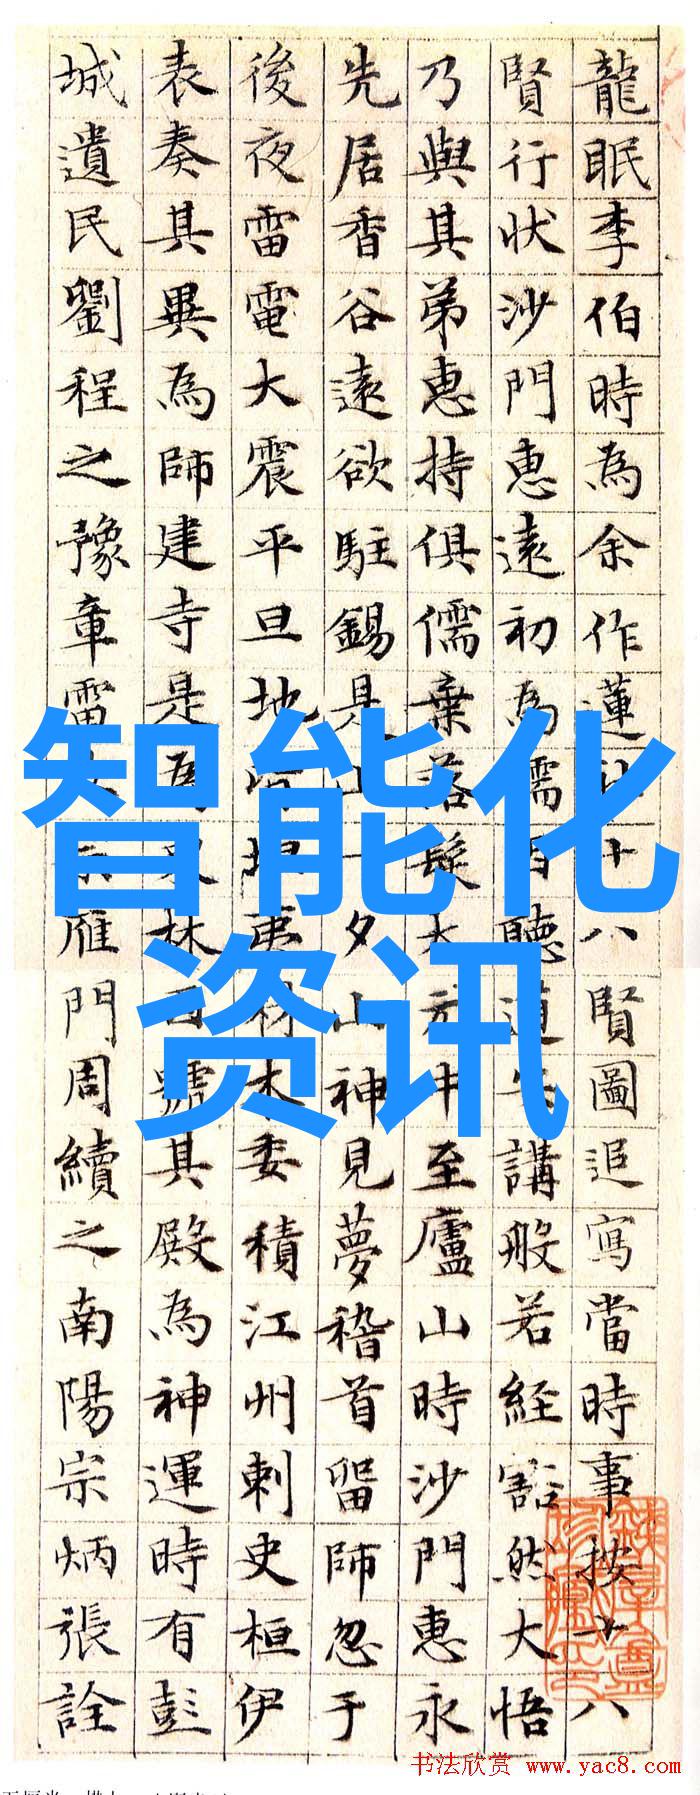 龍眠李伯時為余作蓮社十八賢圖追寫當時事按十八
賢行狀沙門惠遠初為儒聽道安講般若經豁然大悟
乃與其弟惠持俱儒棄落髮太元中至廬山時沙門惠永
先居香谷遠欲駐錫是山一夕山神見夢稽首留師忽于
後夜雷電大震平旦地皆坦夷材木委積江州刺史桓伊
表奏其異為師建寺是為林號其殿為神運時有彭
城遺民劉程之豫章雷雁門周續之南陽宗炳張詮
智能化
资讯
书法欣赏 www.yac8.com